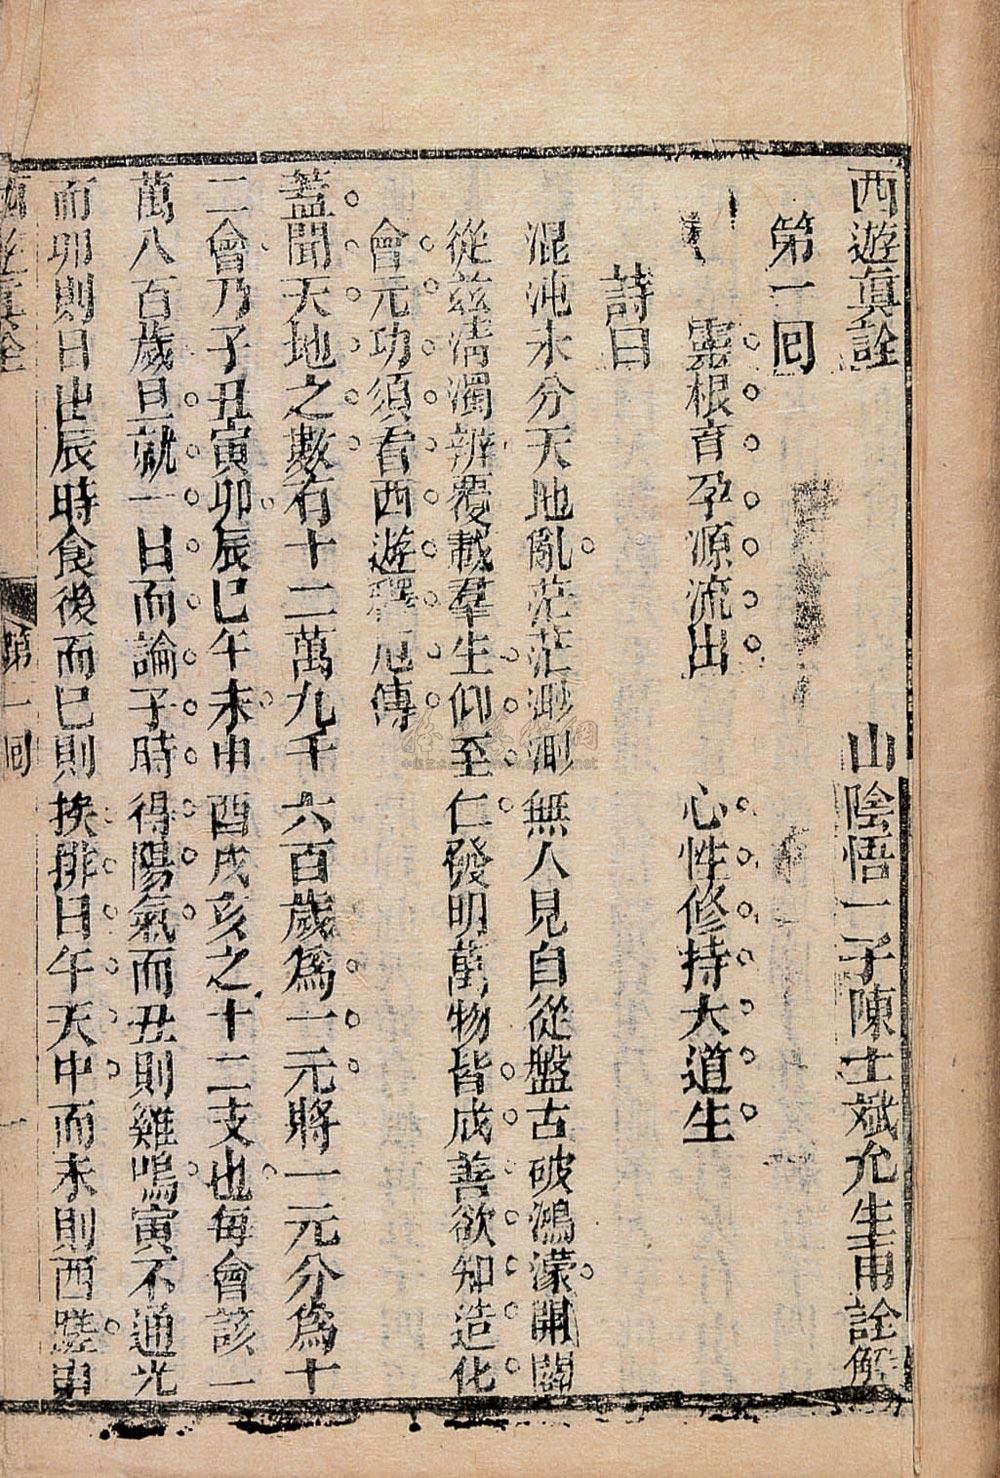 西遊眞詮
山陰悟一子陳士斌允生甫詮解
第一回
靈根育孕源流出　心性修持大道生
詩曰
混沌未分天地亂茫茫渺渺無人見自從盤古破鴻濛開闢
從茲淸濁辨覆載羣生仰至仁發明萬物皆成善欲知造化
會元功須看西遊釋厄傳
蓋聞天地之數有十二萬九千六百歲爲一元將一元分爲十
二會乃子丑寅卯辰巳午未申酉戌亥之十二支也每會該一
萬八百歲且就一日而論子時得陽氣而丑則雞鳴寅不通光
而卯則日出辰時食後而巳則挨排日午天中而未則西蹉申
西遊眞詮
第一回
一